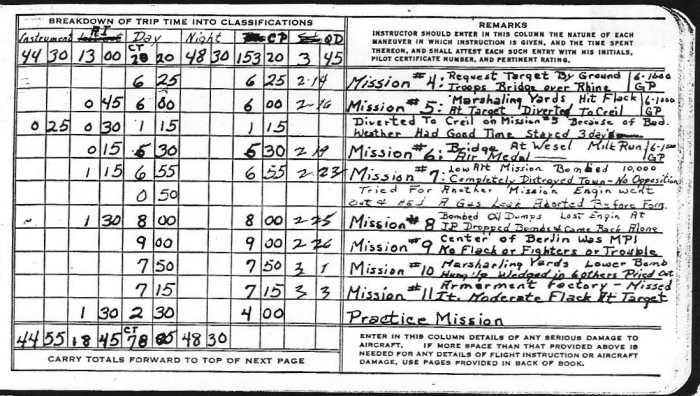 BREAKDOWN OF TRIP TIME INTO CLASSIFICATIONS
REMARKS
INSTRUCTOR SHOULD ENTER IN THIS COLUMN THE NATURE OF EACH
MANEUVER IN WHICH INSTRUCTION IS GIVEN, AND THE TIME SPENT
THEREON, AND SHALL ATTEST EACH SUCH ENTRY WITH HIS INITIALS,
PILOT CERTIFICATE NUMBER, AND PERTINENT RATING.
Instrument AI Day Night CP QD
44 30 13 00 CT 28 20 48 30 153 20 3 45
6 25 6 25 2-14 Mission #4: Request Target By Ground 6-1000
Troops Bridge over Rhine GP
0 45 6 00 6 00 2-16 Mission #5: Marshaling Yards Hit Flack 6-1000
At Target Diverted To Creil GP
0 25 0 30 1 15 1 15 Diverted To Creil on Mission #5 Because of Bad
Weather Had Good Time Stayed 3 days
0 15 5 30 5 30 2-19 Mission #6: Bridge At Wesel Milk Run 6-1000
Air Medal GP
1 15 6 55 6 55 2-23 Mission #7: Low Alt Mission Bombed 10,000
Completely Distroyed Town - No Opposition
0 50 Tried For Another Mission Engin went
Out & Had A Gas Leak Aborted Before Form.
1 30 8 00 8 00 2-25 Mission #8 Bombed Oil Dumps Lost Engin At
I.P Dropped Bombs & Came Back Alone
9 00 9 00 2-26 Mission #9 Center of Berlin Was MPI
No Flack or Fighters or Trouble
7 50 7 50 3 1 Mission #10 Marsharling Yards Lower Bomb
Hung Up Wedged in 6 others Pried Out
7 15 7 15 3 3 Mission #11 Armerment Factory - Missed
It. Moderate Flack At Target
1 30 2 30 4 00 Practice Mission
44 55 18 45 CT 78 05 48 30
CARRY TOTALS FORWARD TO TOP OF NEXT PAGE
ENTER IN THIS COLUMN DETAILS OF ANY SERIOUS DAMAGE TO
AIRCRAFT. IF MORE SPACE THAN THAT PROVIDED ABOVE IS
NEEDED FOR ANY DETAILS OF FLIGHT INSTRUCTION OR AIRCRAFT
DAMAGE, USE PAGES PROVIDED IN BACK OF BOOK.